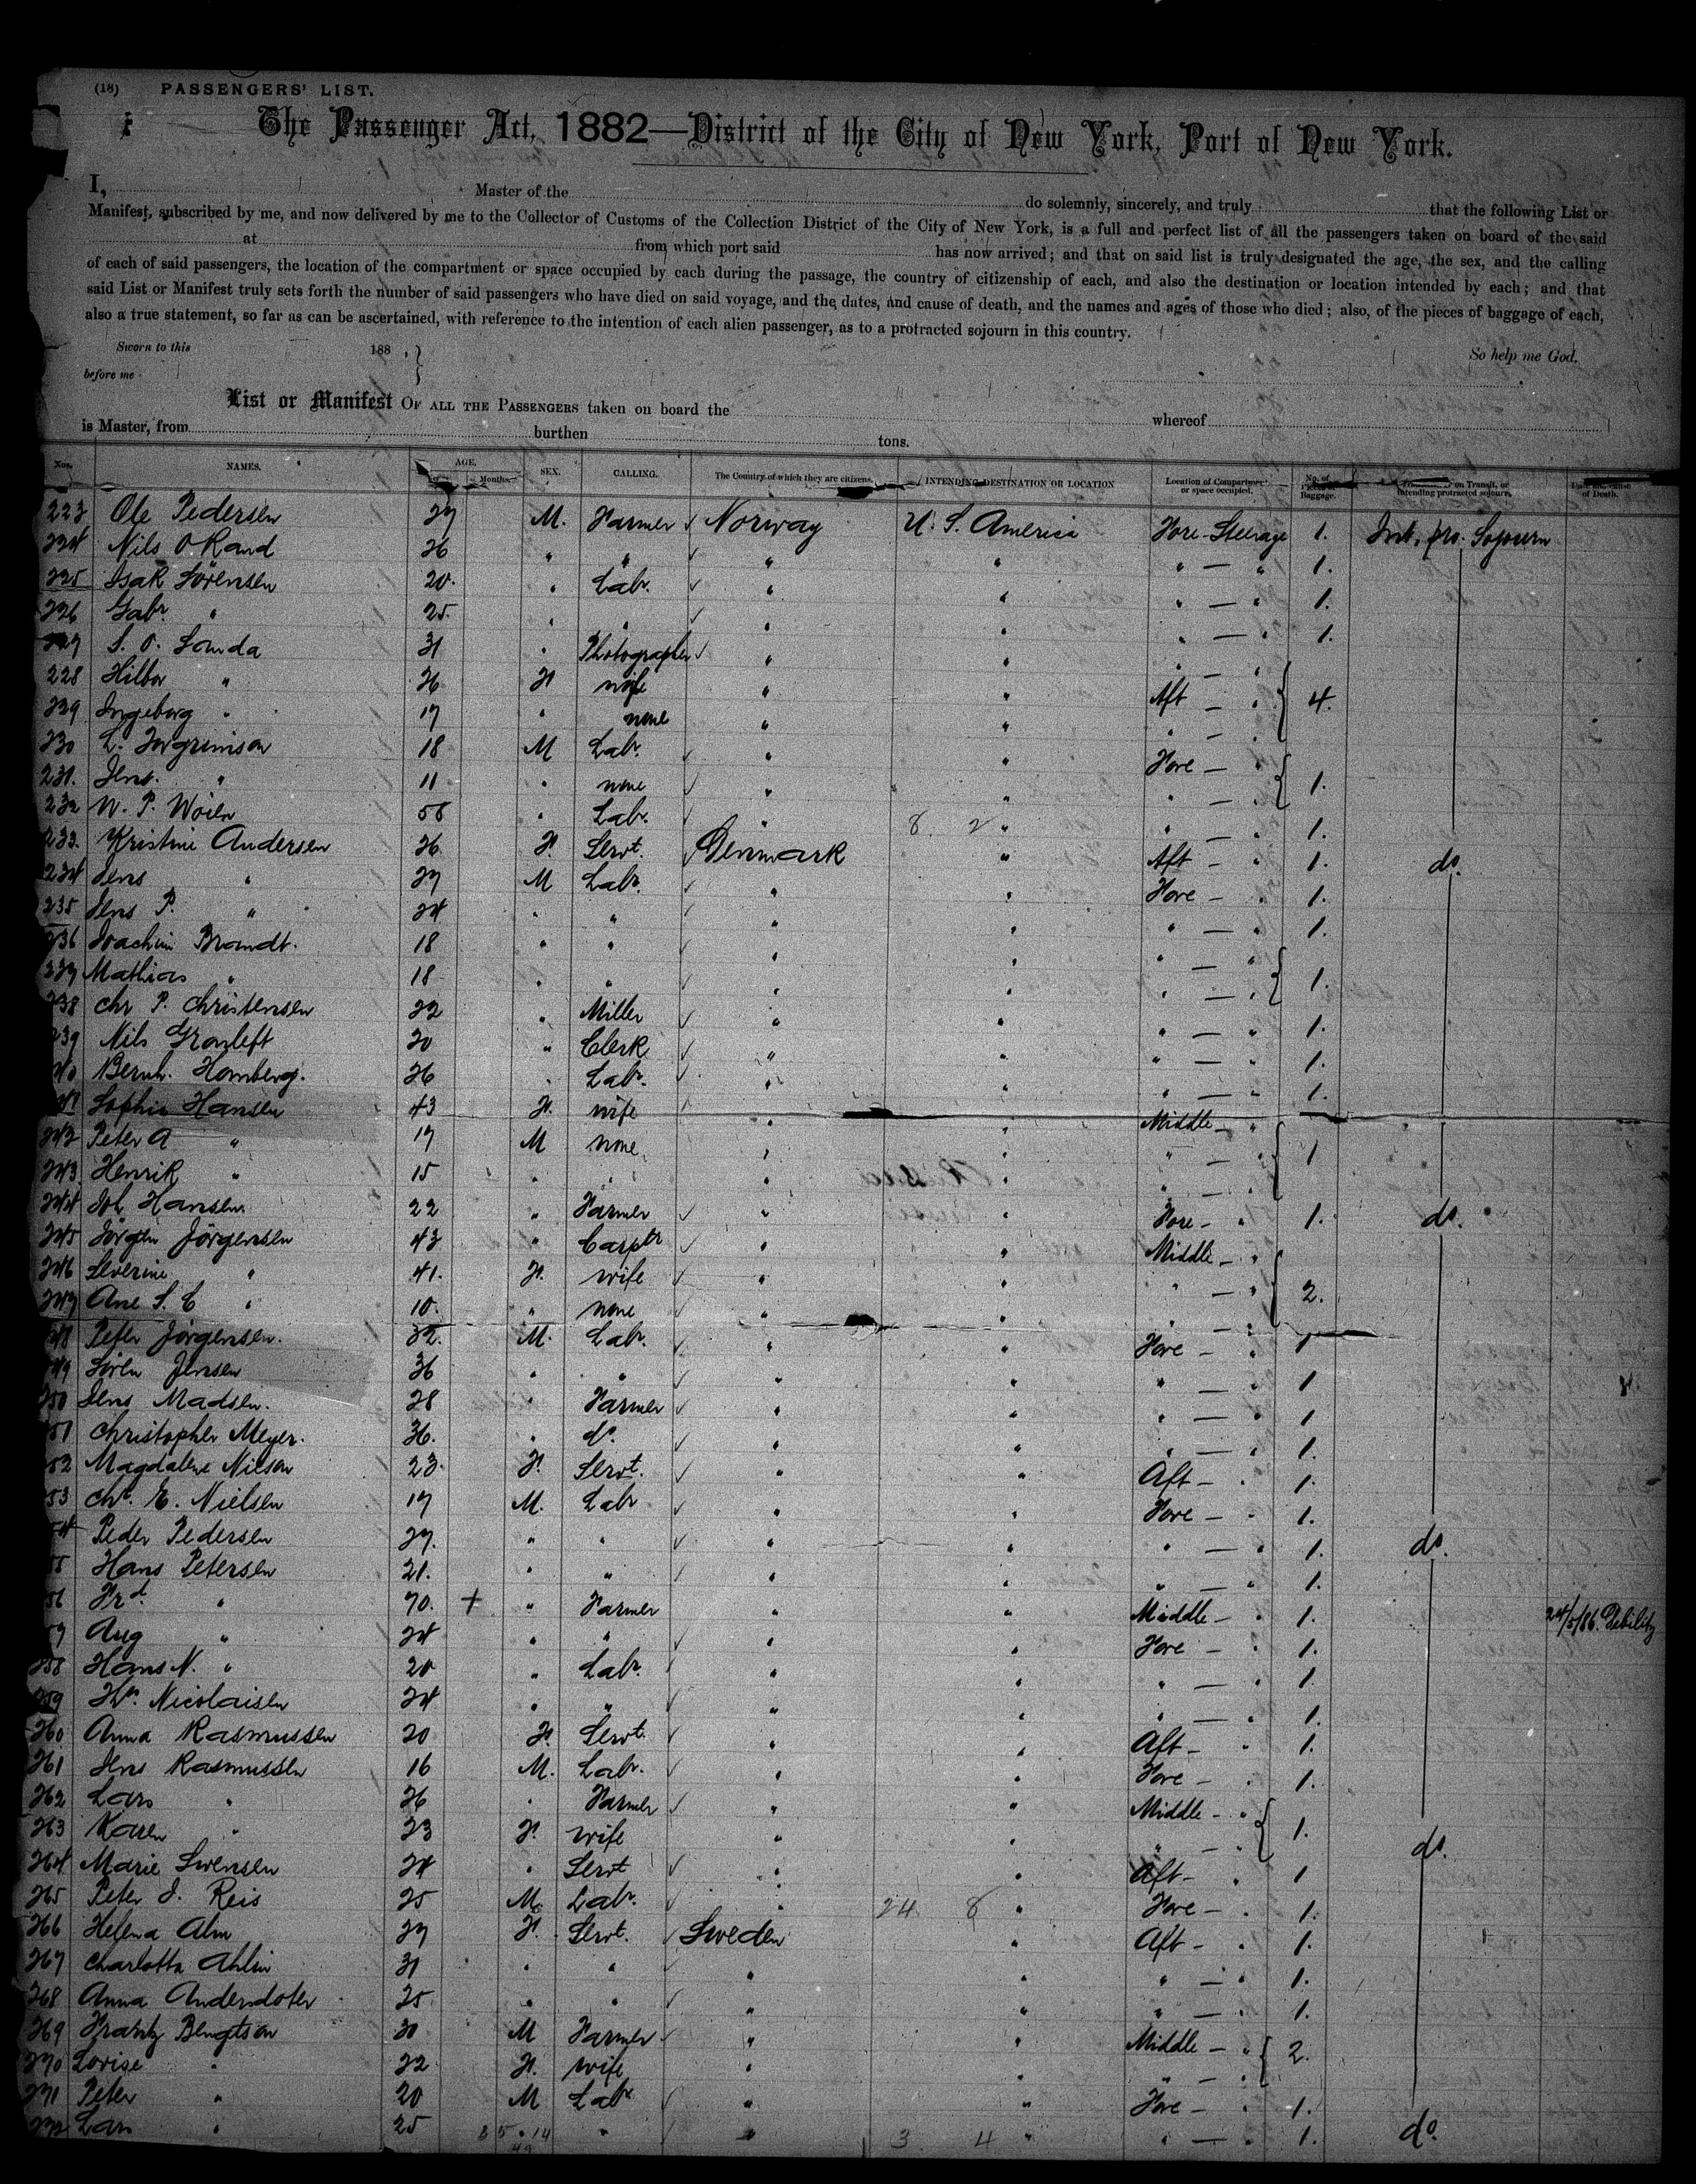 (18) PASSENGERS' LIST.
The Passenger Act, 1882—District of the City of New York, Port of New York.
I, Master of the do solemnly, sincerely, and truly that the following List or
Manifest, subscribed by me, and now delivered by me to the Collector of Customs of the Collection District of the City of New York, is a full and perfect list of all the passengers taken on board of the said
at from which port said has now arrived; and that on said list is truly designated the age, the sex, and the calling
of each of said passengers, the location of the compartment or space occupied by each during the passage, the country of citizenship of each, and also the destination or location intended by each; and that
said List or Manifest truly sets forth the number of said passengers who have died on said voyage, and the dates, and cause of death, and the names and ages of those who died; also, of the pieces of baggage of each,
also a true statement, so far as can be ascertained, with reference to the intention of each alien passenger, as to a protracted sojourn in this country.
Sworn to this 188 , } So help me God.
before me
List or Manifest OF ALL THE PASSENGERS taken on board the whereof
is Master, from burthen tons.
Nos. NAMES. AGE. Months. SEX. CALLING. The Country of which they are citizens. INTENDING DESTINATION OR LOCATION Location of Compartment or space occupied. No. of Pieces of Baggage. on Transit, or intending protracted sojourn. of Death.
223 Ole Pedersen 27 M. Farmer Norway U. S. America Fore-Steerage 1. Int. pro. Sojourn
224 Nils O Rand 26 " " " " " — " 1.
225 Isak Sörensen 20. " Labr. " " " — " 1.
226 Gabr. " 25. " " " " " — " 1.
227 S. O. Sanda 31 " Photographer " " " — "
228 Hilbor " 26 F. wife " " Aft — " 4.
229 Ingeborg " 17 " none " " " — "
230 L. Torgrimson 18 M Labr. " " Fore — "
231. Jens. " 11 " none " " " — " 1.
232 N. P. Woien 58 " Labr. " 8. 2 " " — " 1.
233. Kristine Andersen 26 F. Servt. Denmark " Aft — " 1. do.
234 Jens " 27 M Labr. " " Fore — " 1.
235 Jens P. " 24 " " " " " — " 1.
236 Joachim Brandt. 18 " " " " " — "
237 Mathias " 18 " " " " " — " 1.
238 Chr P. Christensen 22 " Miller " " " — " 1.
239 Nils 20 " Clerk " " " — " 1.
240 Bernh. Homberg. 26 " Labr. " " " — " 1.
241 Sophie Hansen 43 F. wife " " Middle — "
242 Peter A " 17 M none " " " — " 1
243 Henrik " 15 " " " " " — "
244 Joh Hansen 22 " Farmer " " Fore — " 1. do.
245 Jörgen Jörgensen 43 " Carptr " " Middle — "
246 Severine " 41. F. wife " " " — " 2.
247 Ane S. C " 10. " none " " " — "
248 Peter Jörgensen. 32. M. Labr. " " Fore — " 1
249 Sören Jensen 36 " " " " " — " 1
250 Jens Madsen. 28 " Farmer " " " — " 1
251 Christopher Meyer. 36. " do. " " " — " 1.
252 Magdalene Nilson 23. F. Servt. " " Aft — " 1.
253 Chr. E. Nielsen 17 M. Labr " " Fore — " 1.
254 Peder Pedersen 27. " " " " " — " 1. do.
255 Hans Petersen 21. " " " " " — " 1.
256 Frd. " 70. + " Farmer " " Middle — " 1. 24/5/86. Debility
257 Aug " 24 " " " " Fore — " 1.
258 Hans N. " 20 " Labr. " " " — " 1.
259 Nicolaisen 24 " " " " " — " 1.
260 Anna Rasmussen 20 F. Servt. " " Aft — " 1.
261 Jens Rasmussen 16 M. Labr. " " Fore — " 1.
262 Lars " 26 " Farmer " " Middle — "
263 Karen " 23 F. wife " " " — " 1. do.
264 Marie Swensen 24 " Servt " " Aft — " 1
265 Peter J. Reis 25 M. Labr. " 24. 8 " Fore — " 1.
266 Helena Alm 27 F. Servt. Sweden " Aft — " 1.
267 Charlotta Ahlin 31 " " " " " — " 1.
268 Anna Andersdoter 25 " " " " " — " 1.
269 Frantz Bengtson 30 M Farmer " " Middle — " 2.
270 Lovise " 22 F. wife " " " — "
271 Peter " 20 M Labr " " Fore — " 1.
272 Lars " 25 " " " 3. 4 " " — " 1. do.